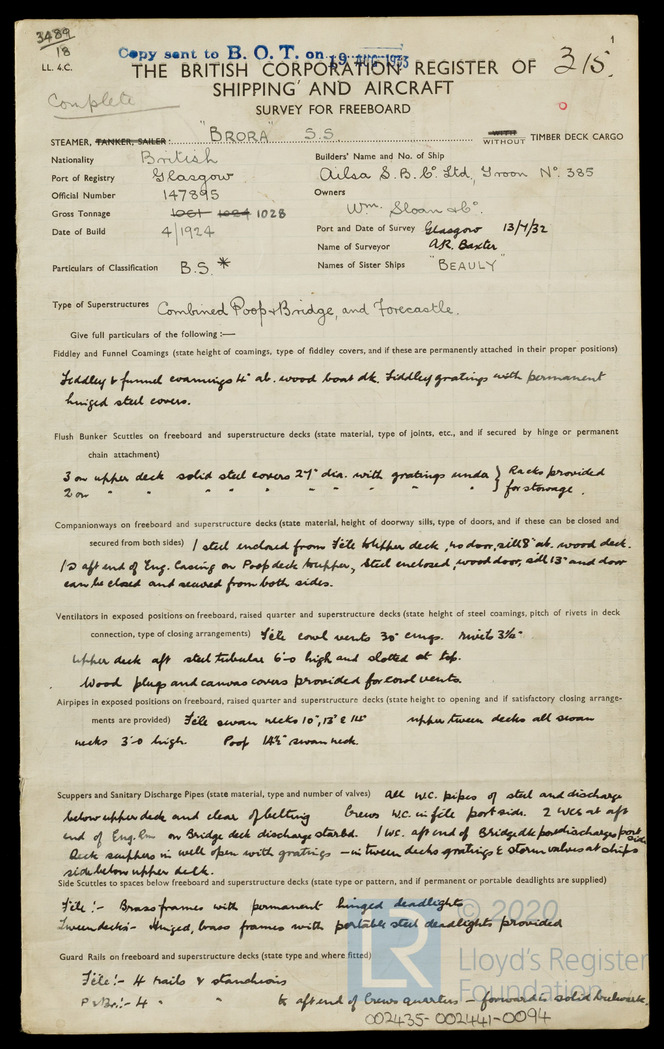 3489
18
LL. 4.C.
Copy sent to B. O. T. on 19 AUG 1933
1
THE BRITISH CORPORATION REGISTER OF
315.
SHIPPING AND AIRCRAFT
Complete
SURVEY FOR FREEBOARD
STEAMER, TANKER, SAILER: "BRORA" S.S. WITH WITHOUT TIMBER DECK CARGO
Nationality British
Builders' Name and No. of Ship
Port of Registry Glasgow
Ailsa S.B. Co. Ltd, Troon No. 385
Official Number 147895
Owners
Gross Tonnage 1061 1084 1028
Wm. Sloan & Co.
Date of Build 4/1924
Port and Date of Survey Glasgow 13/4/32
Name of Surveyor A.R. Baxter
Particulars of Classification B.S.*
Names of Sister Ships "BEAULY"
Type of Superstructures Combined Poop & Bridge, and Forecastle.
Give full particulars of the following :—
Fiddley and Funnel Coamings (state height of coamings, type of fiddley covers, and if these are permanently attached in their proper positions)
Fiddley & funnel coamings 4" ab. wood boat dk. Fiddley gratings with permanent
hinged steel covers.
Flush Bunker Scuttles on freeboard and superstructure decks (state material, type of joints, etc., and if secured by hinge or permanent
chain attachment)
3 on upper deck solid steel covers 27" dia. with gratings under } Racks provided
2 on " " " " " " " " " } for stowage.
Companionways on freeboard and superstructure decks (state material, height of doorway sills, type of doors, and if these can be closed and
secured from both sides) 1 steel enclosed from F'cle to Upper deck, no door, sill 8" ab. wood deck.
1 @ aft end of Eng. Casing on Poop deck to upper, steel enclosed, wood door, sill 13" and door
can be closed and secured from both sides.
Ventilators in exposed positions on freeboard, raised quarter and superstructure decks (state height of steel coamings, pitch of rivets in deck
connection, type of closing arrangements) F'cle cowl vents 30" cmgs. rivets 3½"
Upper deck aft steel tubular 6'-0 high and slotted at top.
Wood plugs and canvas covers provided for cowl vents.
Airpipes in exposed positions on freeboard, raised quarter and superstructure decks (state height to opening and if satisfactory closing arrange-
ments are provided) F'cle swan necks 10", 13" & 14" upper tween decks all swan
necks 3'-0 high. Poop 14½" swan neck.
Scuppers and Sanitary Discharge Pipes (state material, type and number of valves) All W.C. pipes of steel and discharge
below upper deck and clear of belting Crews W.C. in f'cle port side. 2 WCs at aft
end of Eng. Rm on Bridge deck discharge starbd. 1 WC. aft end of Bridge dk port discharges port side
Deck scuppers in well open with gratings — in tween decks gratings & storm valves at ships
side below upper deck.
Side Scuttles to spaces below freeboard and superstructure decks (state type or pattern, and if permanent or portable deadlights are supplied)
F'cle :- Brass frames with permanent hinged deadlights
Tween decks - Hinged, brass frames with portable steel deadlights provided
Guard Rails on freeboard and superstructure decks (state type and where fitted)
F'cle :- 4 rails & stanchions
P & Br. :- 4 " " to aft end of Crews quarters — forward is solid bulwark.
LR
© 2020
Lloyd's Register
Foundation
002435-002441-0094